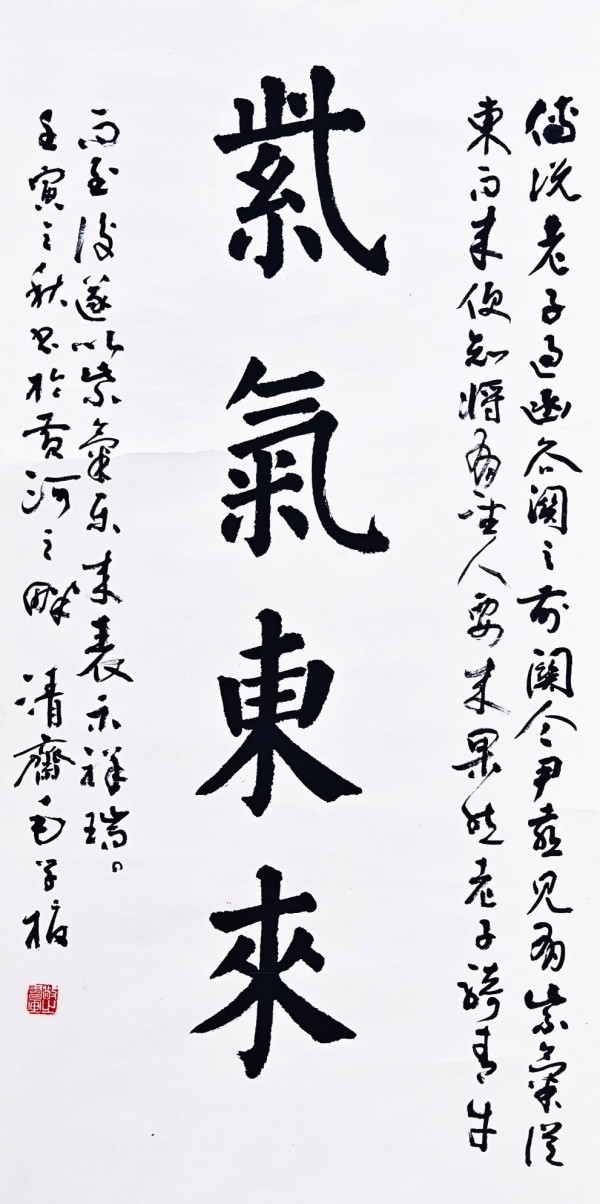 紫氣東來
傳説老子過函谷關之前關令尹喜見有紫氣從
東而来便知將有聖人要来果然老子騎青牛
而至後遂以紫氣东来表示祥瑞。
壬寅之秋书於黄河之畔 清齋毛学